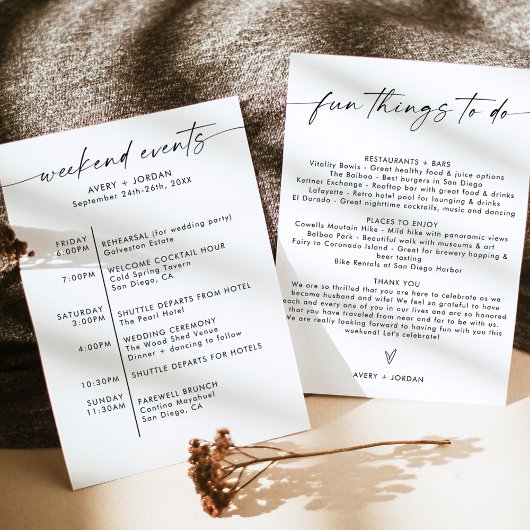 weekend events
AVERY + JORDAN
September 24th-26th, 20XX
FRIDAY
6:00PM
REHEARSAL (for wedding party)
Galveston Estate
7:00PM
WELCOME COCKTAIL HOUR
Cold Spring Tavern
San Diego, CA
SATURDAY
3:00PM
SHUTTLE DEPARTS FROM HOTEL
The Pearl Hotel
4:00PM
WEDDING CEREMONY
The Wood Shed Venue
Dinner + dancing to follow
10:30PM
SHUTTLE DEPARTS FOR HOTELS
SUNDAY
11:30AM
FAREWELL BRUNCH
Cantina Mayahuel
San Diego, CA
fun things to do
RESTAURANTS + BARS
Vitality Bowls - Great healthy food & juice options
The Balboa - Best burgers in San Diego
Kettner Exchange - Rooftop bar with great food & drinks
Lafayette - Retro hotel pool for lounging & drinks
El Dorado - Great nighttime cocktails, music and dancing
PLACES TO ENJOY
Cowells Moutain Hike - Mild hike with panoramic views
Balboa Park - Beautiful walk with museums & art
Fairy to Coronado Island - Great for brewery hopping &
beer tasting
Bike Rentals at San Diego Harbor
THANK YOU
We are so thrilled that you are here to celebrate as we
become husband and wife! We feel so grateful to have
each and every one of you in our lives and are so honored
that you have traveled from near and far to be with us.
We are really looking forward to having fun with you this
weekend! Let's celebrate!
AVERY + JORDAN